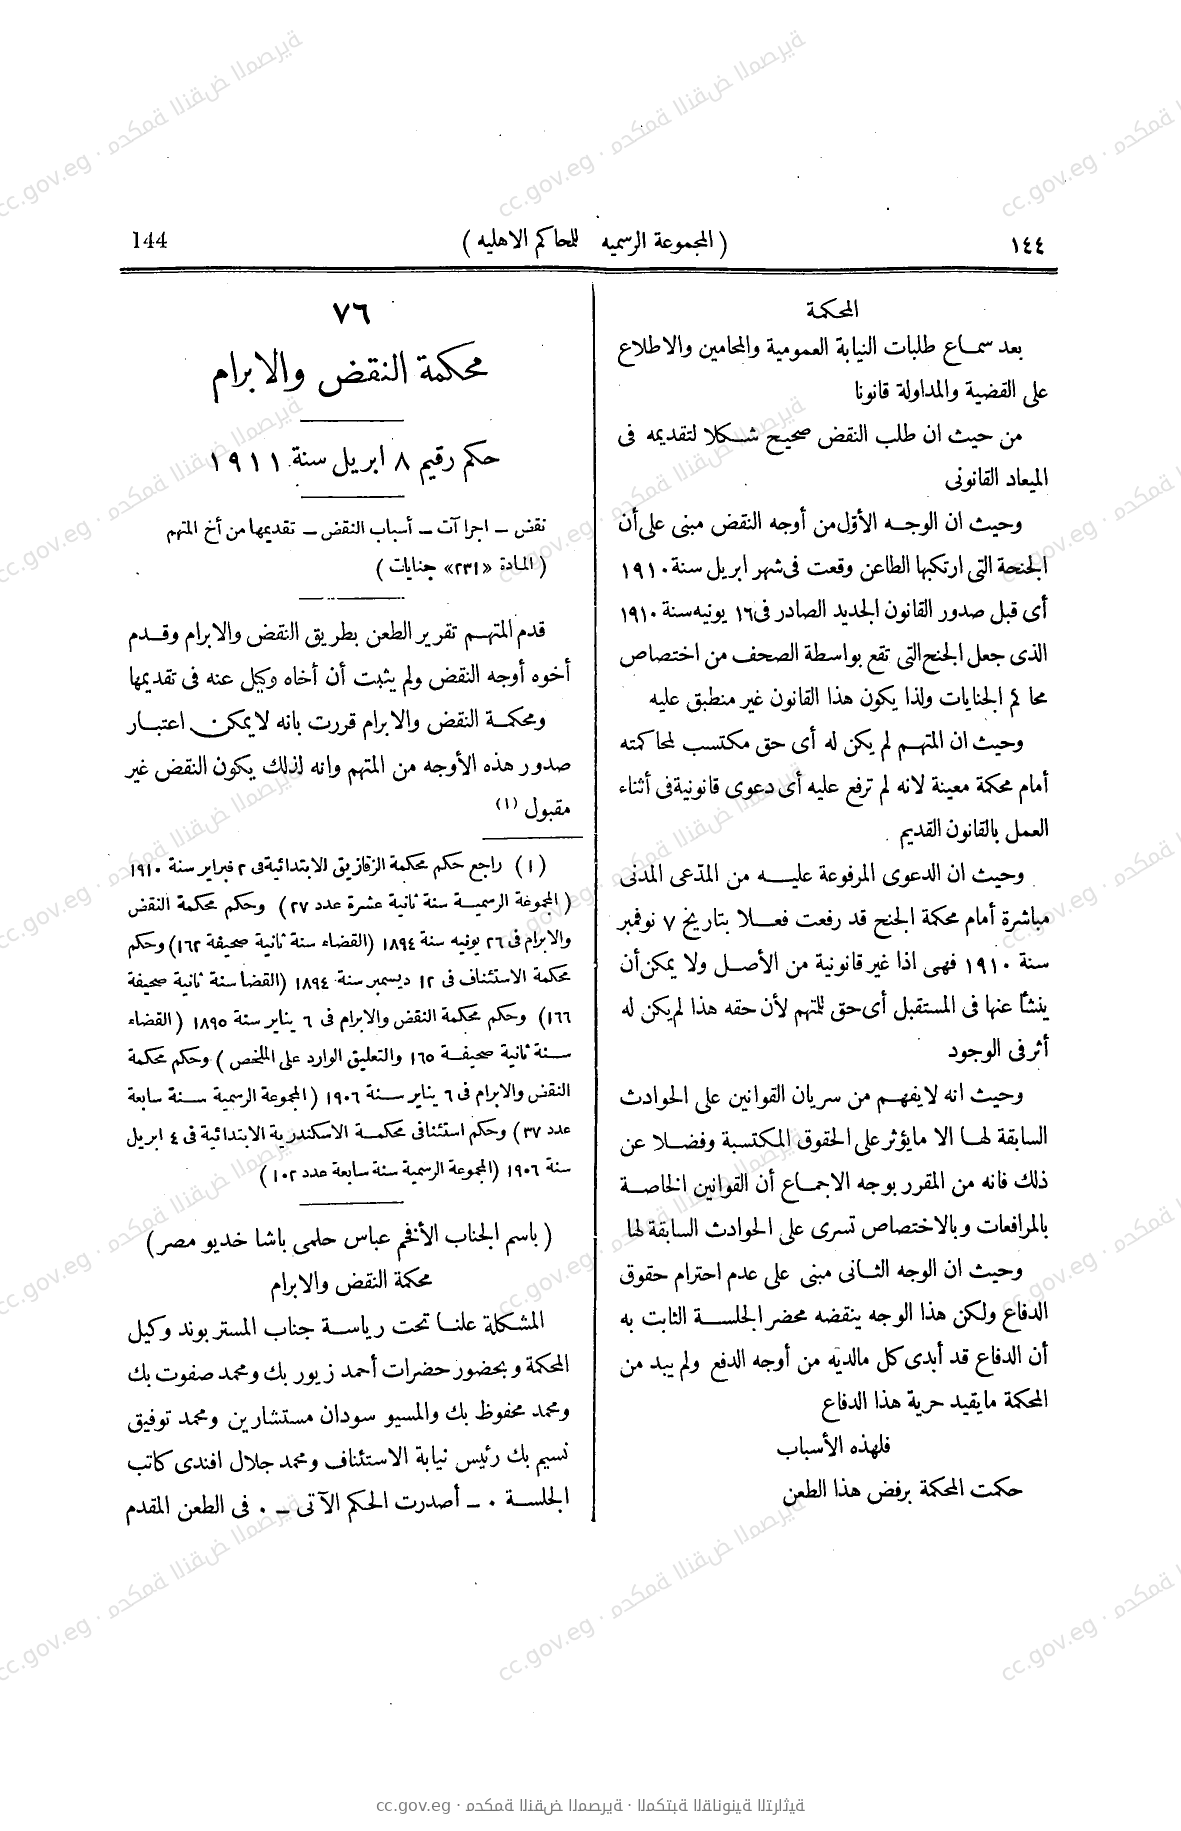 ١٤٤
( المجموعة الرسميه للمحاكم الاهليه )
144
المحكمة
بعد سماع طلبات النيابة العمومية والمحامين والاطلاع
على القضية والمداولة قانونا
من حيث ان طلب النقض صحيح شكلا لتقديمه فى
الميعاد القانونى
وحيث ان الوجه الأوّل من أوجه النقض مبنى على أن
الجنحة التى ارتكبها الطاعن وقعت فى شهر ابريل سنة ١٩١٠
أى قبل صدور القانون الجديد الصادر فى ١٦ يونيه سنة ١٩١٠
الذى جعل الجنح التى تقع بواسطة الصحف من اختصاص
محاكم الجنايات ولذا يكون هذا القانون غير منطبق عليه
وحيث ان المتهم لم يكن له أى حق مكتسب لمحاكمته
أمام محكمة معينة لانه لم ترفع عليه أى دعوى قانونية فى أثناء
العمل بالقانون القديم
وحيث ان الدعوى المرفوعة عليه من المدّعى المدنى
مباشرة أمام محكمة الجنح قد رفعت فعلا بتاريخ ٧ نوفمبر
سنة ١٩١٠ فهى اذا غير قانونية من الأصل ولا يمكن أن
ينشأ عنها فى المستقبل أى حق للمتهم لأن حقه هذا لم يكن له
أثر فى الوجود
وحيث انه لا يفهم من سريان القوانين على الحوادث
السابقة لها الا ما يؤثر على الحقوق المكتسبة وفضلا عن
ذلك فانه من المقرر بوجه الاجماع أن القوانين الخاصة
بالمرافعات وبالاختصاص تسرى على الحوادث السابقة لها
وحيث ان الوجه الثانى مبنى على عدم احترام حقوق
الدفاع ولكن هذا الوجه ينقضه محضر الجلسة الثابت به
أن الدفاع قد أبدى كل مالديه من أوجه الدفع ولم يبد من
المحكمة مايقيد حرية هذا الدفاع
فلهذه الأسباب
حكمت المحكمة برفض هذا الطعن
٧٦
محكمة النقض والابرام
حكم رقيم ٨ ابريل سنة ١٩١١
نقض ــ اجراآت ــ أسباب النقض ــ تقديمها من أخ المتهم
( المادة «٢٣١» جنايات )
قدم المتهم تقرير الطعن بطريق النقض والابرام وقدم
أخوه أوجه النقض ولم يثبت أن أخاه وكيل عنه فى تقديمها
ومحكمة النقض والابرام قررت بانه لا يمكن اعتبار
صدور هذه الأوجه من المتهم وانه لذلك يكون النقض غير
مقبول (١)
(١) راجع حكم محكمة الزقازيق الابتدائية فى ٢ فبراير سنة ١٩١٠
(المجموعة الرسمية سنة ثانية عشرة عدد ٢٧) وحكم محكمة النقض
والابرام فى ٢٦ يونيه سنة ١٨٩٤ (القضاء سنة ثانية صحيفة ١٦٢) وحكم
محكمة الاستئناف فى ١٢ ديسمبر سنة ١٨٩٤ (القضا سنة ثانية صحيفة
١٦٦) وحكم محكمة النقض والابرام فى ٦ يناير سنة ١٨٩٥ (القضاء
سنة ثانية صحيفة ١٦٥ والتعليق الوارد على الملخص) وحكم محكمة
النقض والابرام فى ٦ يناير سنة ١٩٠٦ (المجموعة الرسمية سنة سابعة
عدد ٣٧) وحكم استئنافى محكمة الاسكندرية الابتدائية فى ٤ ابريل
سنة ١٩٠٦ (المجموعة الرسمية سنة سابعة عدد ١٠٢)
( باسم الجناب الأفخم عباس حلمى باشا خديو مصر )
محكمة النقض والابرام
المشكلة علنا تحت رياسة جناب المستر بوند وكيل
المحكمة وبحضور حضرات أحمد زيور بك ومحمد صفوت بك
ومحمد محفوظ بك والمسيو سودان مستشارين ومحمد توفيق
نسيم بك رئيس نيابة الاستئناف ومحمد جلال افندى كاتب
الجلسة . ــ أصدرت الحكم الآتى ــ . فى الطعن المقدم
cc.gov.eg · محكمة النقض المصرية · المكتبة القانونية التراثية